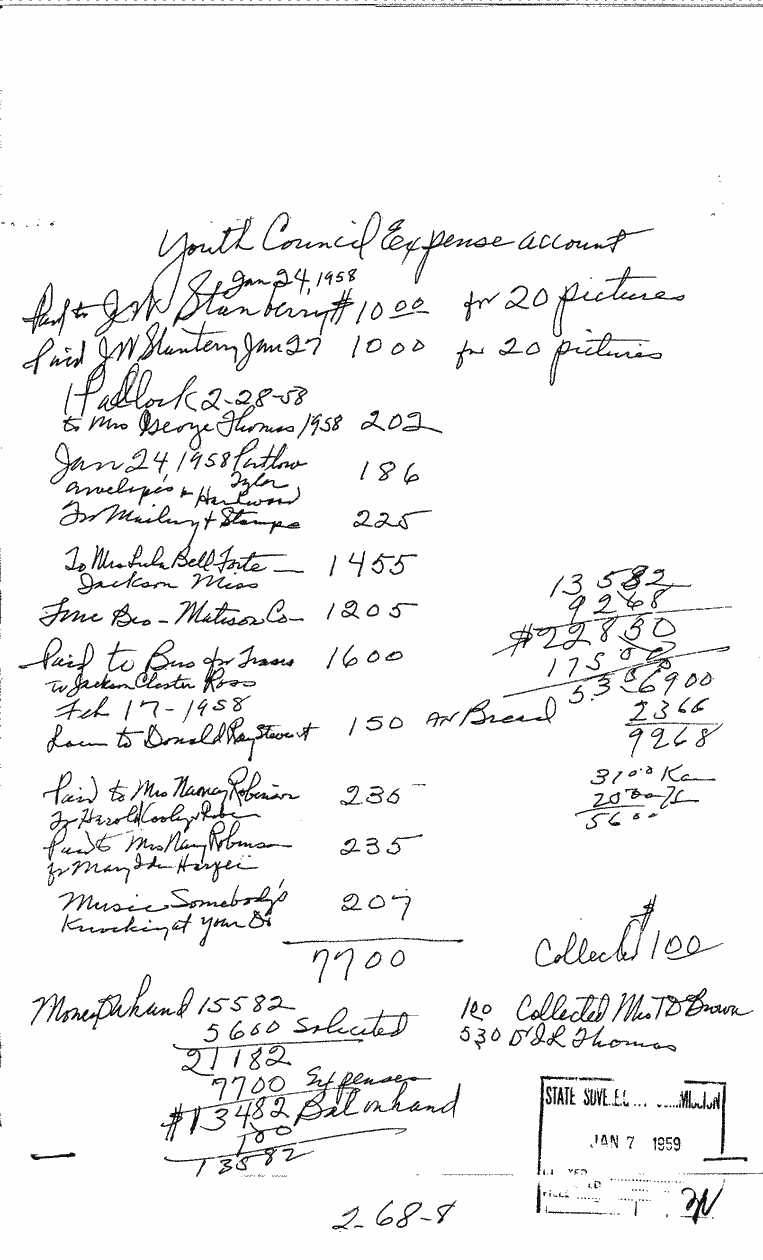 Youth Council Expense account
Jan 24, 1958
Paid to J W Stanberry $ 10 00 for 20 pictures
Paid J W Stanberry Jan 27 10 00 for 20 pictures
1 Padlock 2-28-58
to Mrs George Thomas 1958 202
Jan 24, 1958 Partlow 186
Tyler
envelopes Hardwood
For Mailing & Stamps 225
To Mrs Lula Bell Forte — 1455
Jackson Miss
13 582
9268
Bro - Co - 1205
$22850
175 00
Paid to Bus for Trans 1600
53 6900
to Jackson Chester Ross
Feb 17-1958
2366
Loan to Donald Ray Stewart 150 on Bread
9268
31 00
20 00
5600
Paid to Mrs Nancy Robinson 236
For Harold Cooly
Paid to Mrs Nancy Robinson 235
for Mary Ida
Music Somebody's 207
Knocking at your Do
7700
$
Collected 100
Money On hand 15582
5600 Solicited
100 Collected Mrs T D Brown
530 Thomas
21182
7700 Expenses
$13482 Bal on hand
100
13582
STATE
JAN 7 1959
2-68-8